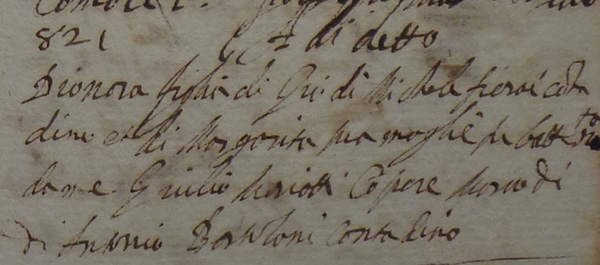 821 di detto
Dionora figlia di Gio: di Michel fieroi conta
dino et di Margarita sua moglie fu batt.ta
da me Giulio Mariotti Compare Marco di
di Antonio Bartoloni contadino